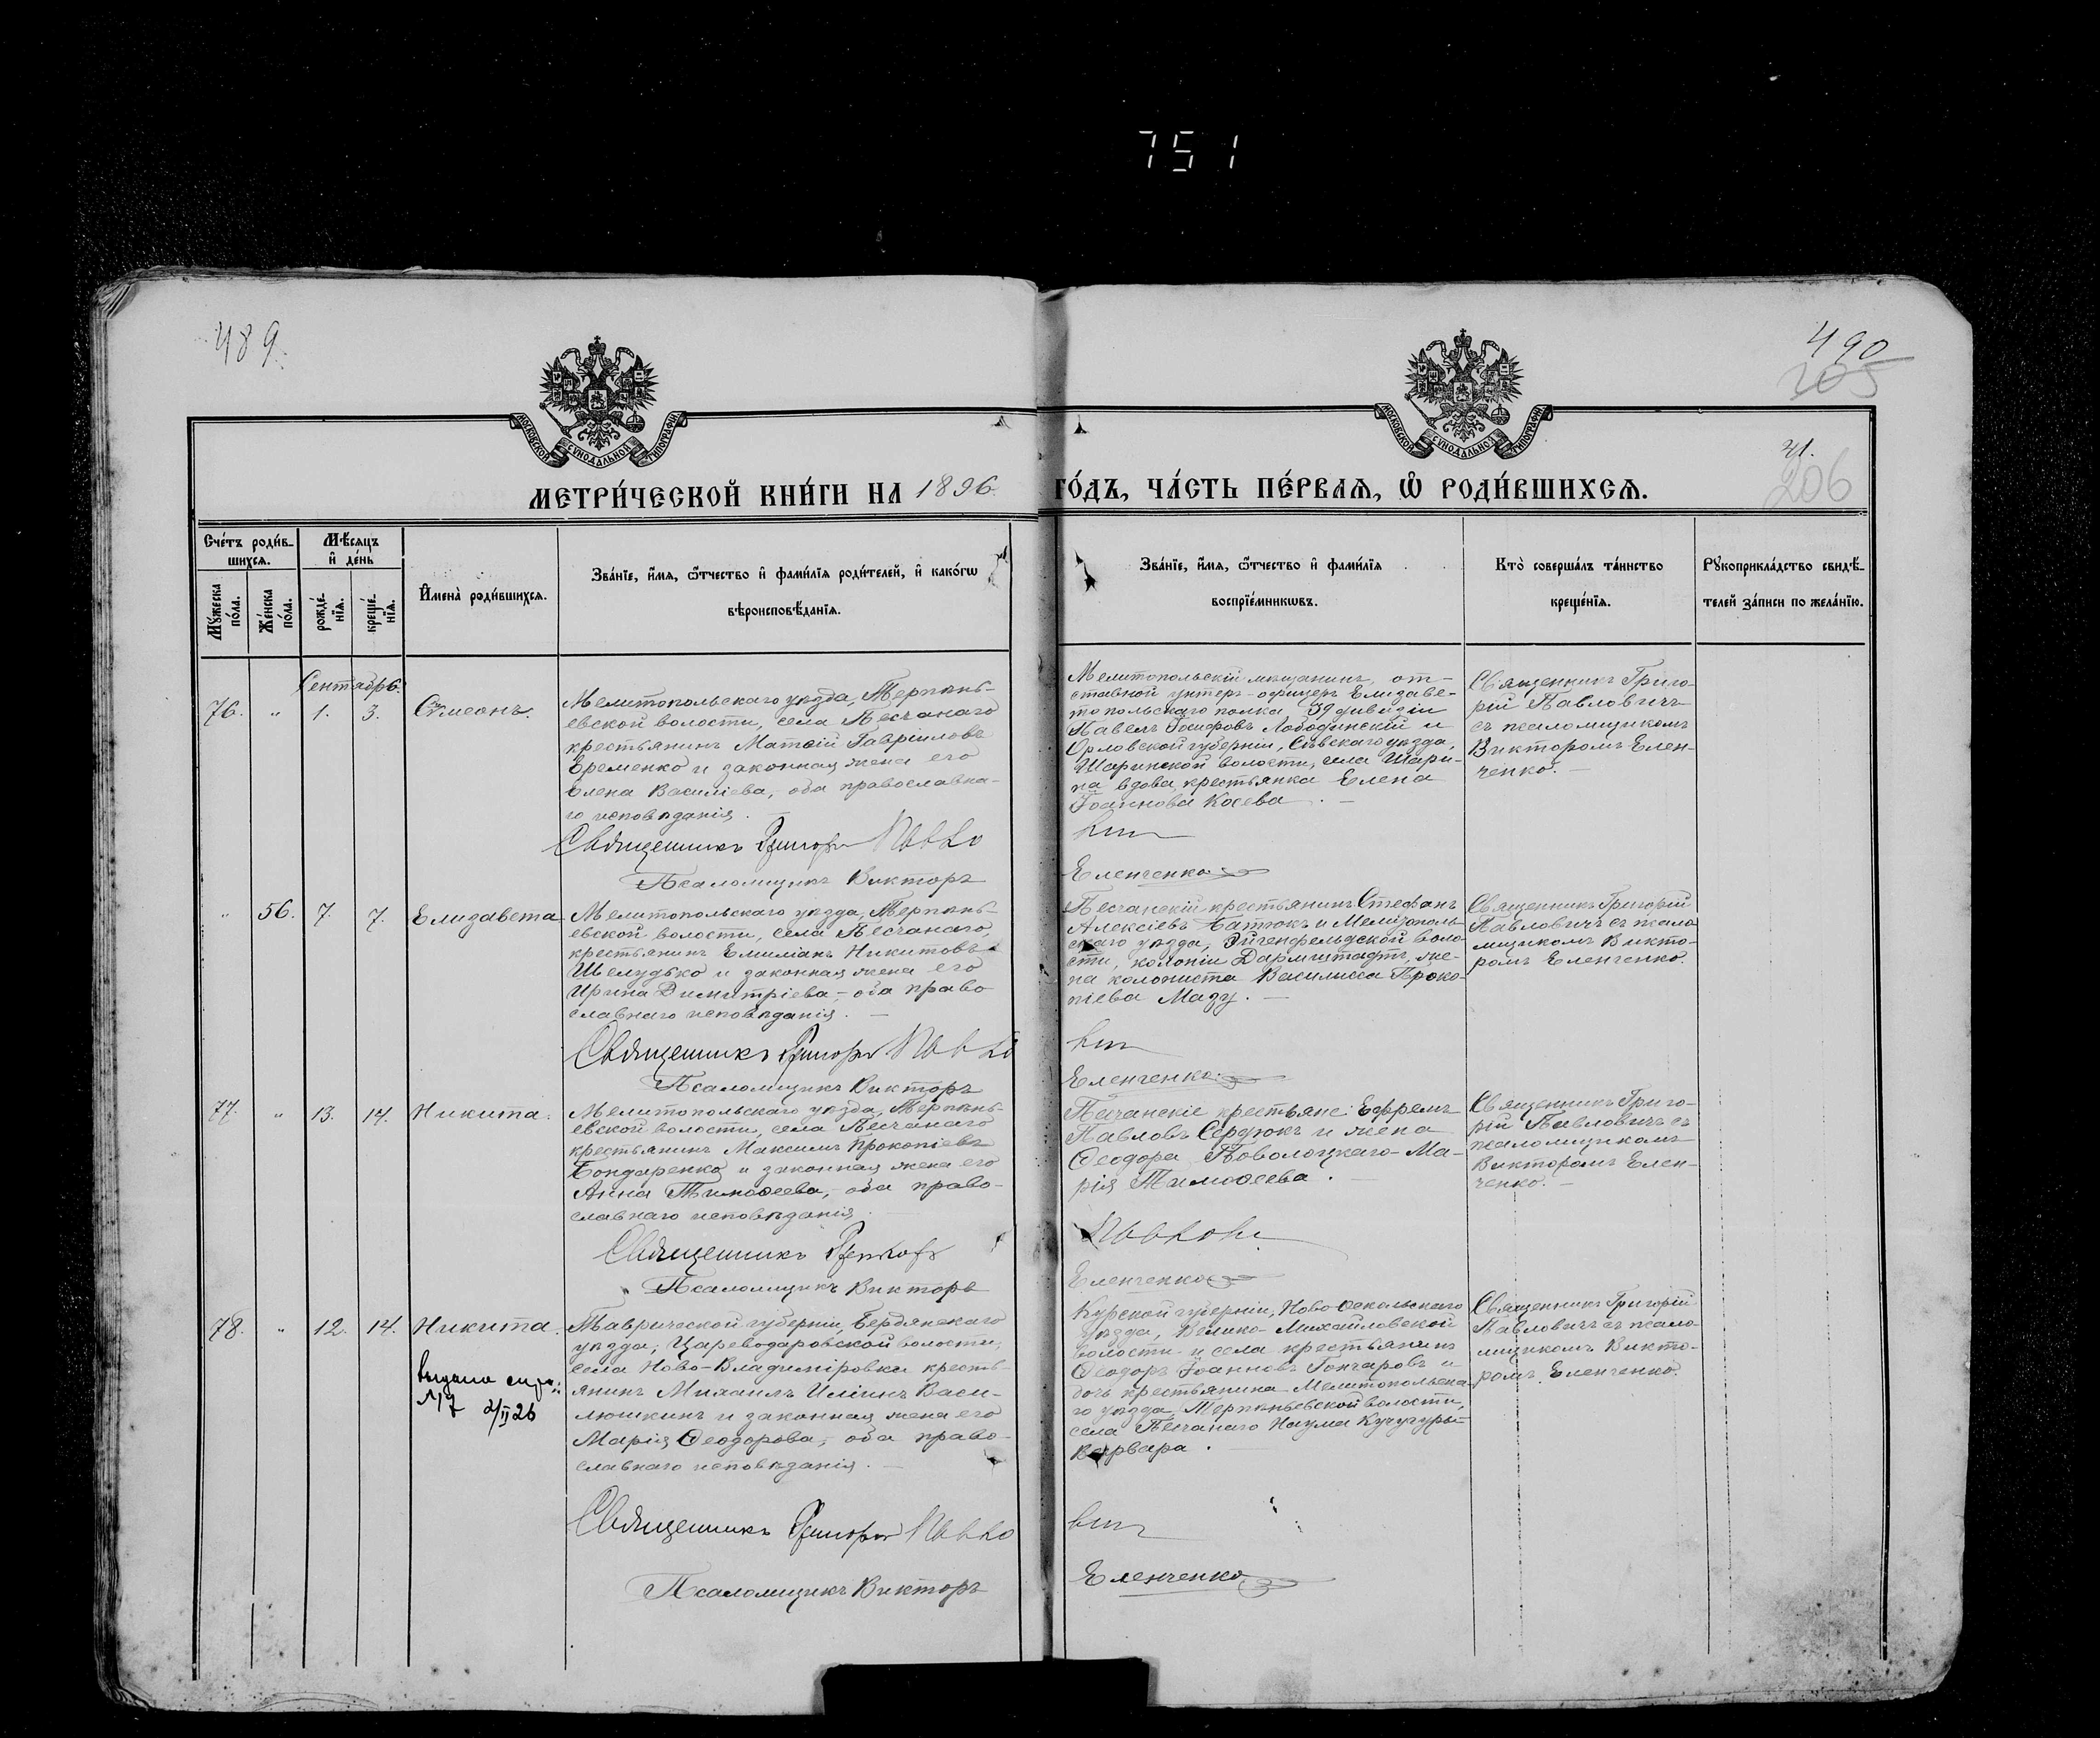 751
489
490
205
41.
206
МОСКОВСКОЙ СѴНОДАЛЬНОЙ ТИПОГРАФІИ
МОСКОВСКОЙ СѴНОДАЛЬНОЙ ТИПОГРАФІИ
МЕТРИ́ЧЕСКОЙ КНИ́ГИ НА 1896 ГО́ДЪ, ЧА́СТЬ ПЕ́РВАЯ, Ѡ҆ РОДИ́ВШИХСЯ.
Сче́тъ роди́в-
шихся.
Мѣ́сяцъ
и҆ де́нь
Мꙋ́жеска по́ла.
Же́нска по́ла.
рожде́-
нїя.
креще́-
нїя.
И҆мена̀ роди́вшихся.
Зва́нїе, и҆́мя, ѻ҆́тчество и҆ фами́лїя роди́телей, и҆ како́гѡ
вѣроисповѣ́данїя.
Зва́нїе, и҆́мя, ѻ҆́тчество и҆ фами́лїя
воспрїе́мникѡвъ.
Кто̀ соверша́лъ та́инство
креще́нїя.
Рꙋкоприкла́дство свидѣ́-
телей за́писи по жела́нїю.
Сентябрь.
76. " 1. 3. Сѵмеонъ.
Мелитопольскаго уѣзда, Терпѣнь-
евской волости, села Песчанаго
крестьянинъ Матѳій Гавріиловъ
Еременко и законная жена его
Елена Василіева, оба православна-
го исповѣданія.
Священникъ Григорій Павло
Псаломщикъ Викторъ
Мелитопольскій мѣщанинъ, от-
ставной унтеръ-офицеръ Елизаве-
топольскаго полка 39 дивизіи
Павелъ Іосифовъ Лободинскій и
Орловской губерніи, Сѣвскаго уѣзда,
Шаринской волости, села Шари-
на вдова крестьянка Елена
Іоаннова Косева.
вичъ
Еленченко
Священникъ Григо-
рій Павловичъ
съ псаломщикомъ
Викторомъ Елен-
ченко.
" 56. 7. 7. Елизавета
Мелитопольскаго уѣзда, Терпѣнь-
евской волости, села Песчанаго,
крестьянинъ Емиліанъ Никитовъ
Шелудько и законная жена его
Ирина Димитріева, оба право
славнаго исповѣданія.
Священникъ Григорій Павло
Псаломщикъ Викторъ
Песчанскій крестьянинъ Стефанъ
Алексіевъ Батюкъ и Мелитополь-
скаго уѣзда, Эйгенфельдской воло-
сти, колоніи Дармштадтъ, же-
на колониста Василисса Проко-
піева Мазу.
вичъ
Еленченко
Священникъ Григорій
Павловичъ съ псало
мщикомъ Викто-
ромъ Еленченко.
77. " 13. 14. Никита.
Мелитопольскаго уѣзда, Терпѣнь-
евской волости, села Песчанаго
крестьянинъ Максимъ Прокопіевъ
Бондаренко и законная жена его
Анна Тимоѳеева, оба право-
славнаго исповѣданія.
Священникъ Григорій
Псаломщикъ Викторъ
Песчанскіе крестьяне: Ефремъ
Павловъ Сердюкъ и жена
Ѳеодора Поволоцкаго Ма-
рія Тимоѳеева.
Павловичъ
Еленченко
Священникъ Григо-
рій Павловичъ съ
псаломщикомъ
Викторомъ Елен-
ченко.
78. " 12. 14. Никита.
выдана спра:
№7 2/II 26
Таврической губерніи, Бердянскаго
уѣзда, Цареводаровской волости,
села Ново-Владиміровки кресть-
янинъ Михаилъ Иліинъ Васи-
люшкинъ и законная жена его
Марія Ѳеодорова, оба право-
славнаго исповѣданія.
Священникъ Григорій Павло
Псаломщикъ Викторъ
Курской губерніи, Ново-Оскольскаго
уѣзда, Велико-Михайловской
волости и села крестьянинъ
Ѳеодоръ Іоанновъ Гончаровъ и
дочь крестьянина Мелитопольска-
го уѣзда, Терпѣньевской волости,
села Песчанаго Наума Кучугуры
Варвара.
вичъ
Еленченко
Священникъ Григорій
Павловичъ съ псало-
мщикомъ Викто-
ромъ Еленченко.